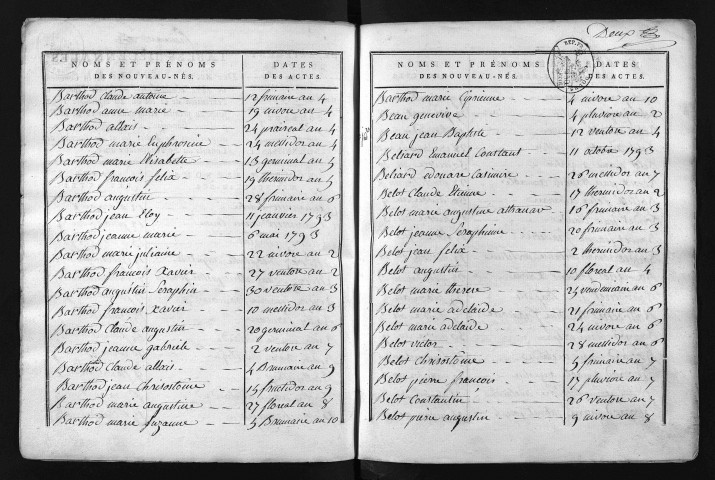 NOMS ET PRÉNOMS DES NOUVEAU-NÉS. DATES DES ACTES.
Barthod Claude antoine 12 frimaire an 4
Barthod anne marie 19 nivose an 4
Barthod alexis 24 prairéal an 4
Barthod marie Euphrosine 24 messidor an 4
Barthod marie Elisabette 13 germinal an 5
Barthod françois felix 19 thermidor an 5
Barthod augustin 28 frimaire an 6
Barthod jean Eloy 11 janvier 1793
Barthod jeanne marie 6 mai 1793
Barthod marie julienne 22 nivose an 2
Barthod françois Xavier 27 ventose an 2
Barthod augustin Seraphin 30 ventose an 3
Barthod françois Xavier 10 messidor an 3
Barthod Claude augustin 20 germinal an 6
Barthod jeanne gabriele 2 ventose an 7
Barthod Claude alexis 4 Brumaire an 9
Barthod jean Chrisostome 15 fructidor an 9
Barthod marie augustine 27 floreal an 8
Barthod marie Suzanne 5 Brumaire an 10
Deux
NOMS ET PRÉNOMS DES NOUVEAU-NÉS. DATES DES ACTES.
Barthod marie Ciprienne 4 nivose an 10
Beau genevieve 4 pluviose an 2
Beau jean Baptiste 12 ventose an 4
Beliard Emanuel Constant 11 octobre 1793
Beliard edouare Casimire 26 messidor an 7
Belot Claude Etienne 17 thermidor an 2
Belot marie augustine 16 frimaire an 3
Belot jeanne Seraphine 20 frimaire an 3
Belot jean felix 2 thermidor an 3
Belot augustin 10 floreal an 4
Belot marie therese 23 vendemiaire an 6
Belot marie adelaide 21 frimaire an 6
Belot marie adelaide 24 nivose an 6
Belot victor 28 messidor an 6
Belot Chrisostome 5 frimaire an 7
Belot pierre françois 15 pluviose an 7
Belot Constantin 26 ventose an 7
Belot pierre augustin 9 nivose an 8